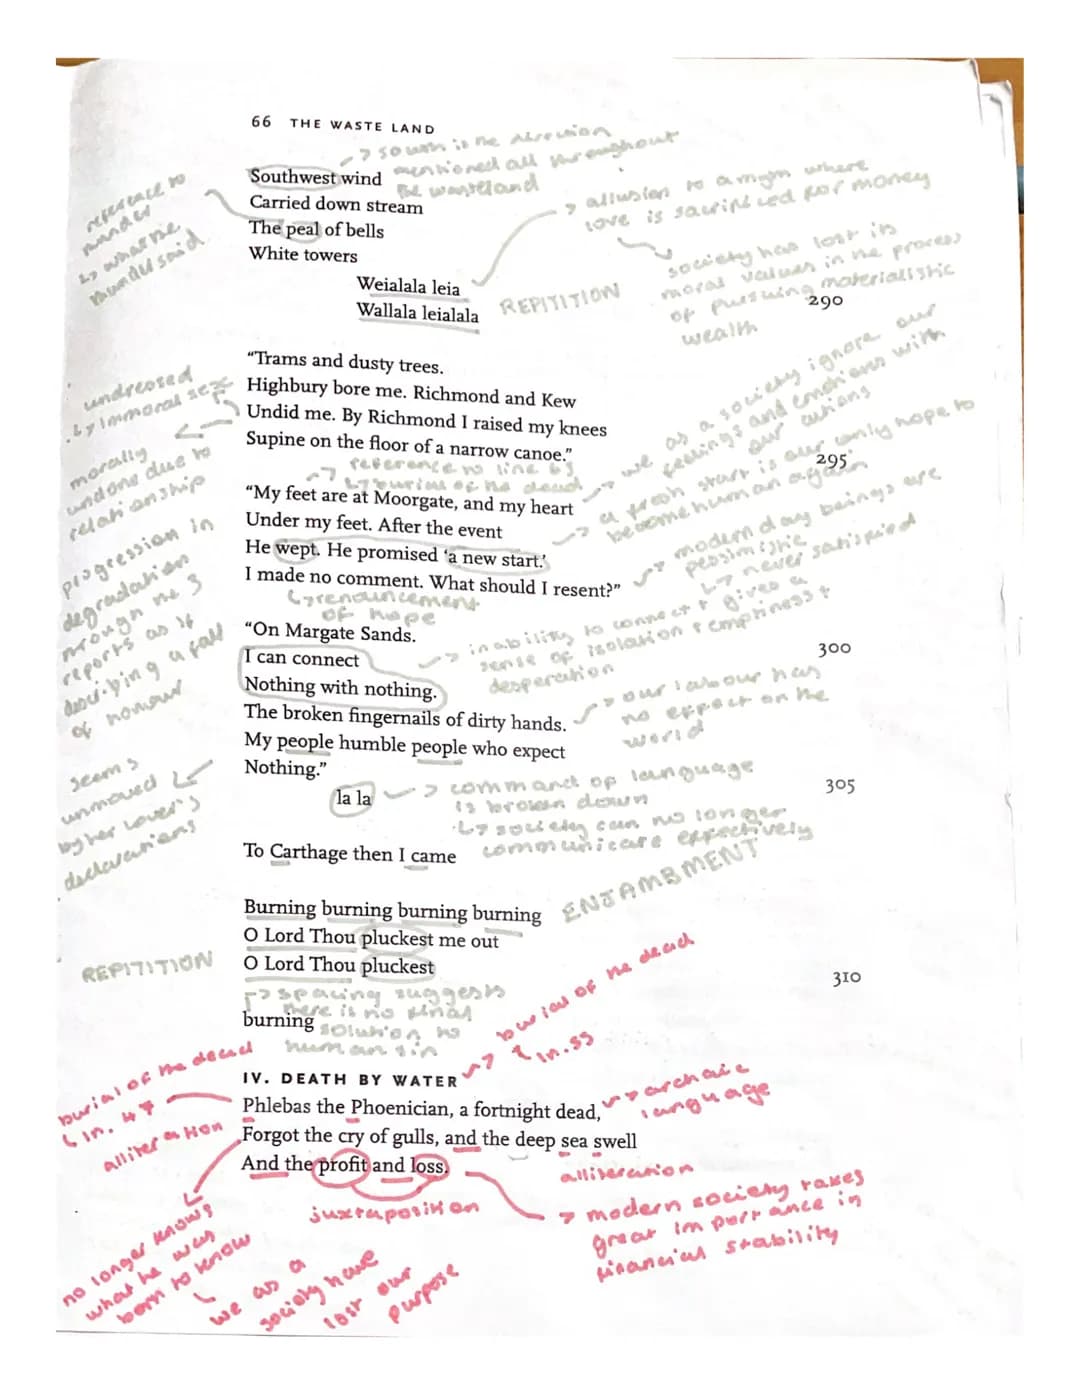 66 THE WASTE LAND
→ south is the direction
mentioned all throughout
the wasteland
Southwest wind
Carried down stream
The peal of bells
White towers
reference to
↳ what the
said
→ allusion to a myth where
love is sacrificed for money
society has lost its
moral values in the process
of pursuing materialistic
wealth
Weialala leia
Wallala leialala
REPITITION
290
"Trams and dusty trees.
Highbury bore me. Richmond and Kew
Undid me. By Richmond I raised my knees
Supine on the floor of a narrow canoe."
undressed
↳ immoral sex
morally
undone due to
relationship
reference to line 63
↳ burial of the dead
→ we as a society ignore our
feelings and emotions with
our actions
295
"My feet are at Moorgate, and my heart
Under my feet. After the event
He wept. He promised 'a new start.'
I made no comment. What should I resent?"
→ a fresh start is our only hope to
become human again
→ modern day beings are
pessimistic
↳ never satisfied
↳ renouncement
of hope
progression in
degradation
through the 3
reports as if
describing a fall
of honour
"On Margate Sands.
I can connect
Nothing with nothing.
The broken fingernails of dirty hands.
My people humble people who expect
Nothing."
la la
→ inability to connect gives a
sense of isolation & emptiness &
desperation
300
→ our labour has
no effect on the
world
seems
unmoved
by her lover's
declarations
→ command of language
is broken down
↳ society can no longer
communicate effectively
305
To Carthage then I came
Burning burning burning burning
O Lord Thou pluckest me out
O Lord Thou pluckest
burning
ENJAMBMENT
REPITITION
310
→ spacing suggests
there is no final
solution to
human sin
IV. DEATH BY WATER
→ burial of the dead
↳ ln.55
burial of the dead
↳ ln. 47
alliteration
Phlebas the Phoenician, a fortnight dead,
Forgot the cry of gulls, and the deep sea swell
And the profit and loss.
→ archaic
language
alliteration
juxtaposition
→ modern society takes
great importance in
financial stability
no longer knows
what he was
born to know
↳ we as a
society have
lost our
purpose